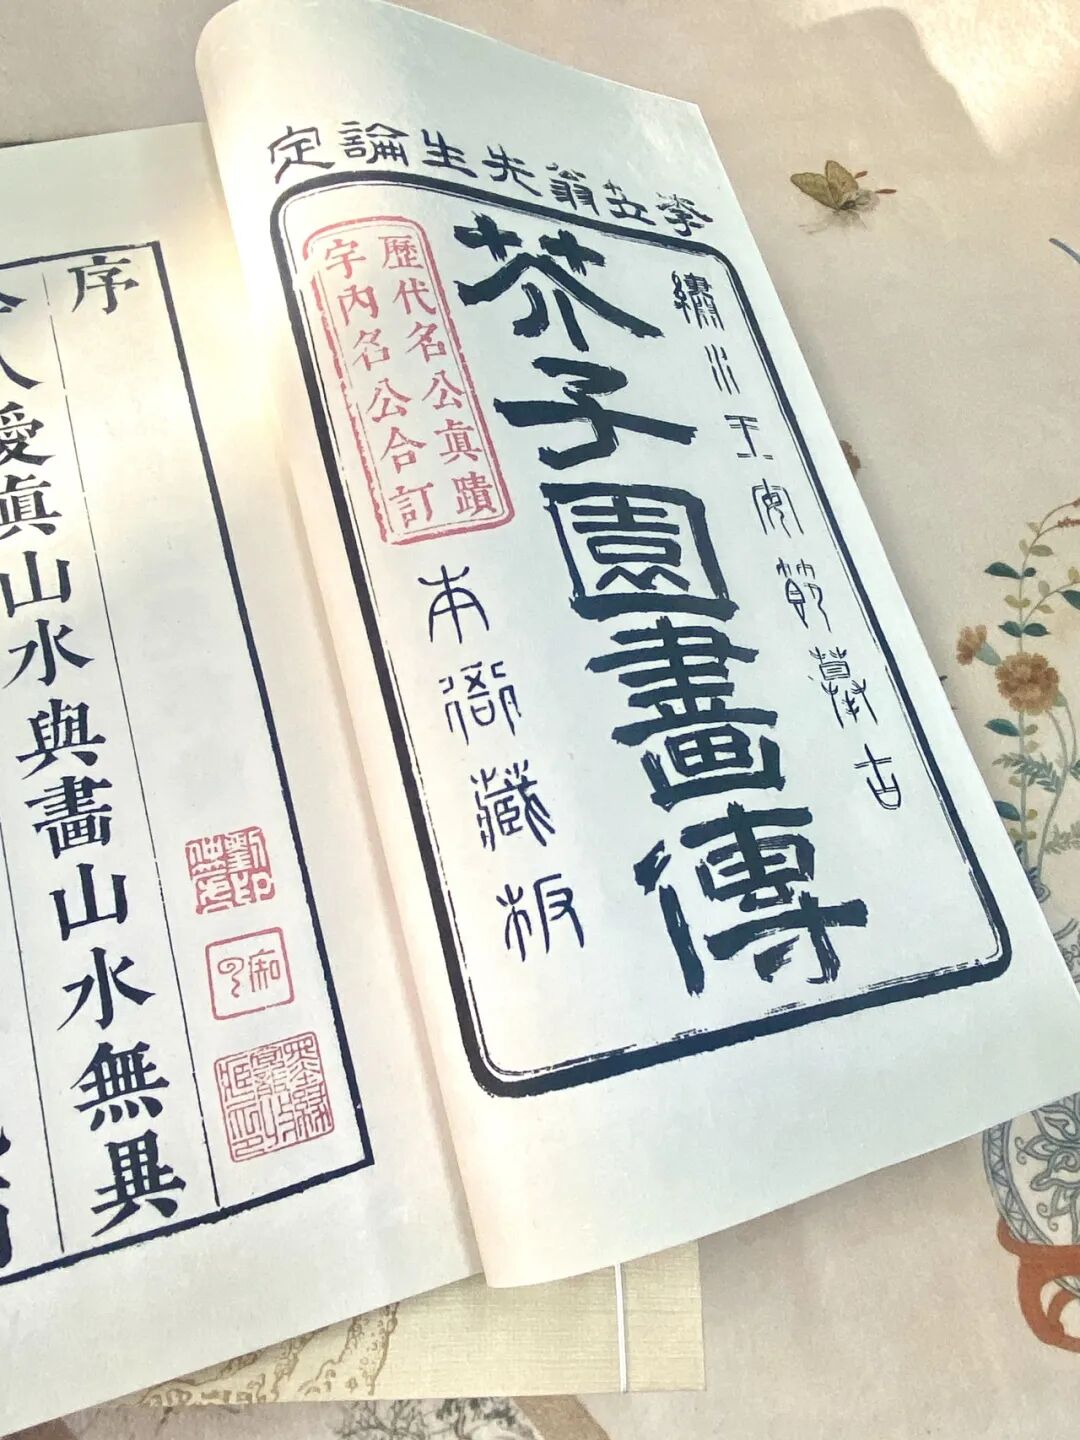 李笠翁先生論定
繡水王安節摹古
芥子園畫傳
歷代名公眞蹟
宇內名公合訂
本衙藏板
序
人愛眞山水與畫山水無異